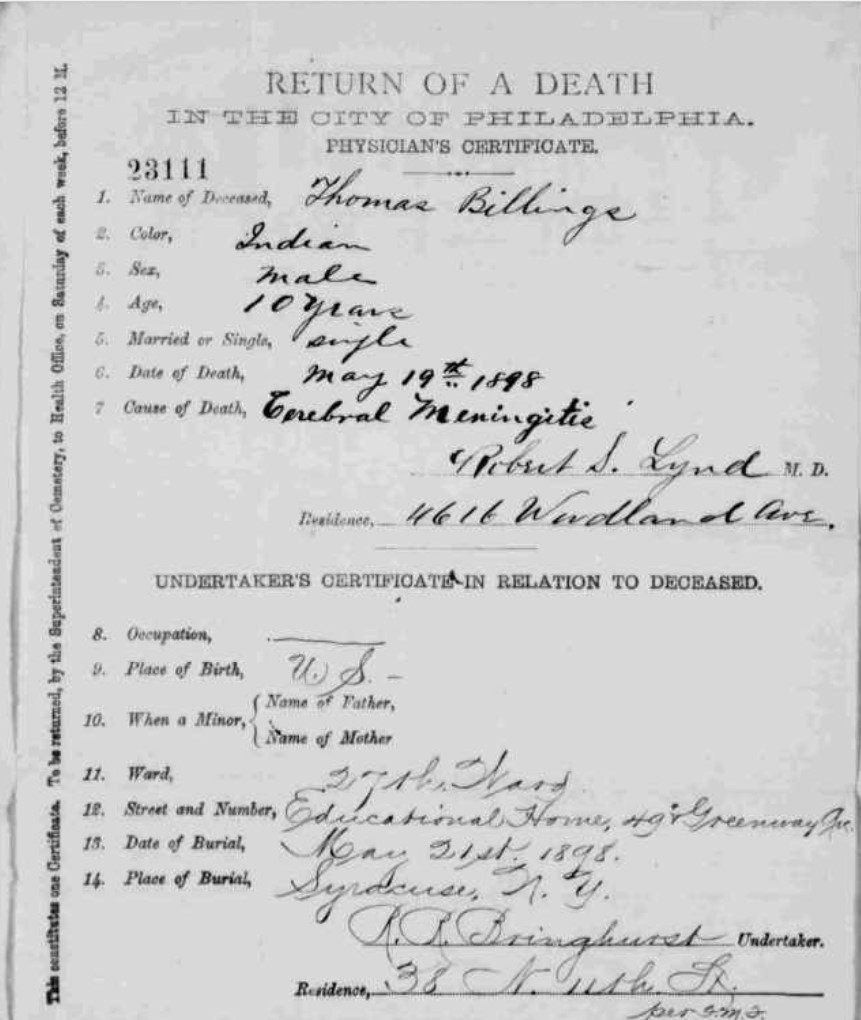 RETURN OF A DEATH
IN THE CITY OF PHILADELPHIA.
PHYSICIAN'S CERTIFICATE.
23111
1. Name of Deceased, Thomas Billings
2. Color, Indian
3. Sex, male
4. Age, 10 years
5. Married or Single, single
6. Date of Death, May 19th 1898
7 Cause of Death, Cerebral Meningitis
Robert S. Lynd M. D.
Residence, 4616 Woodland Ave.
UNDERTAKER'S CERTIFICATE IN RELATION TO DECEASED.
8. Occupation,
9. Place of Birth, U. S. -
10. When a Minor, { Name of Father,
Name of Mother
11. Ward, 27th, Ward
12. Street and Number, Educational Home, 49 & Greenway Ave.
13. Date of Burial, May 21st. 1898.
14. Place of Burial, Syracuse, N. Y.
R. R. Bringhurst Undertaker.
Residence, 38 N. 11th. St.
per
This constitutes one Certificate. To be returned, by the Superintendent of Cemetery, to Health Office, on Saturday of each week, before 12 M.